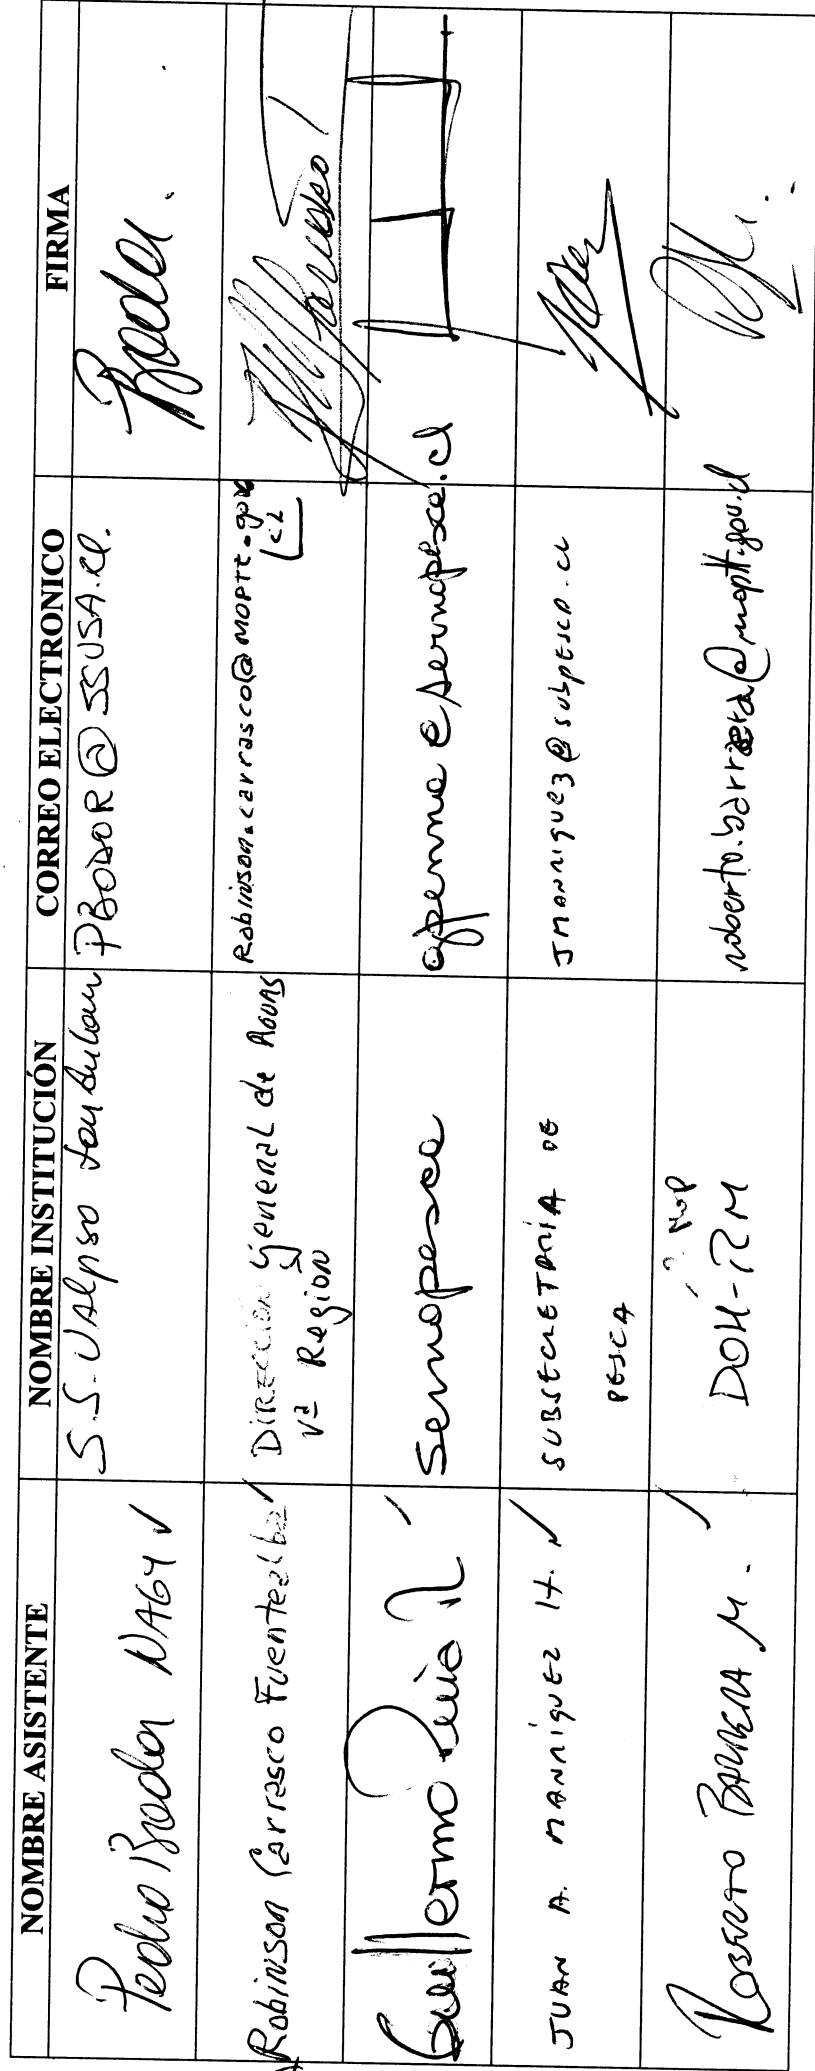 NOMBRE ASISTENTE NOMBRE INSTITUCIÓN CORREO ELECTRONICO FIRMA
Pedro Bodor NAGY S.S. VAlpso San Antonio PBODOR@SSVSA.cl. Bodor.
Robinson Carrasco Fuentealba Dirección General de Aguas Robinson.carrasco@moptt.gov.
Vª Región cl
Guillermo R Sernapesca @sernapesca.cl
JUAN A. MANRIQUEZ H. SUBSECRETARIA DE JMANRIQUEZ@subpesca.cl
PESCA
ROBERTO BARRERA M. MOP
DOH-RM roberto.barrera@moptt.gov.cl